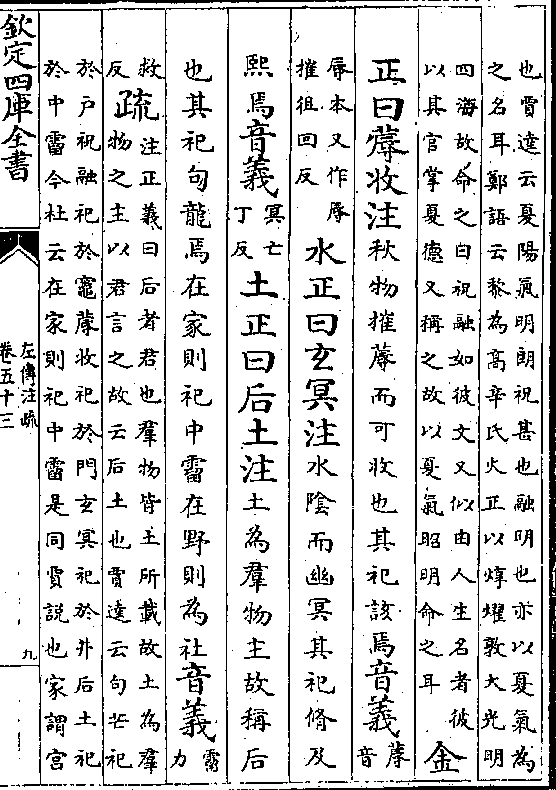 也賈逵云夏陽氣明朗祝甚也融明也亦以夏氣為
之名耳鄭語云黎為高辛氏火正以焞耀敦大光明
四海故命之曰祝融如彼文又似由人生名者彼
以其官掌夏德又稱之故以夏氣昭明命之耳
金
正曰蓐收注秋物摧蓐而可收也其祀該焉音義蓐音
辱本又作辱
摧徂回反
水正曰玄冥注水陰而幽冥其祀脩及
熙焉音義冥亡
丁反
土正曰后土注土為羣物主故稱后
也其祀句龍焉在家則祀中霤在野則為社音義霤力
救
反
疏
注正義曰后者君也羣物皆土所載故土為羣
物之主以君言之故云后土也賈逵云句芒祀
於户祝融祀於竈蓐收祀於門玄冥祀於井后土祀
於中霤今杜云在家則祀中霤是同賈説也家謂宫
欽定四庫全書
左傳注疏
卷五十三
九